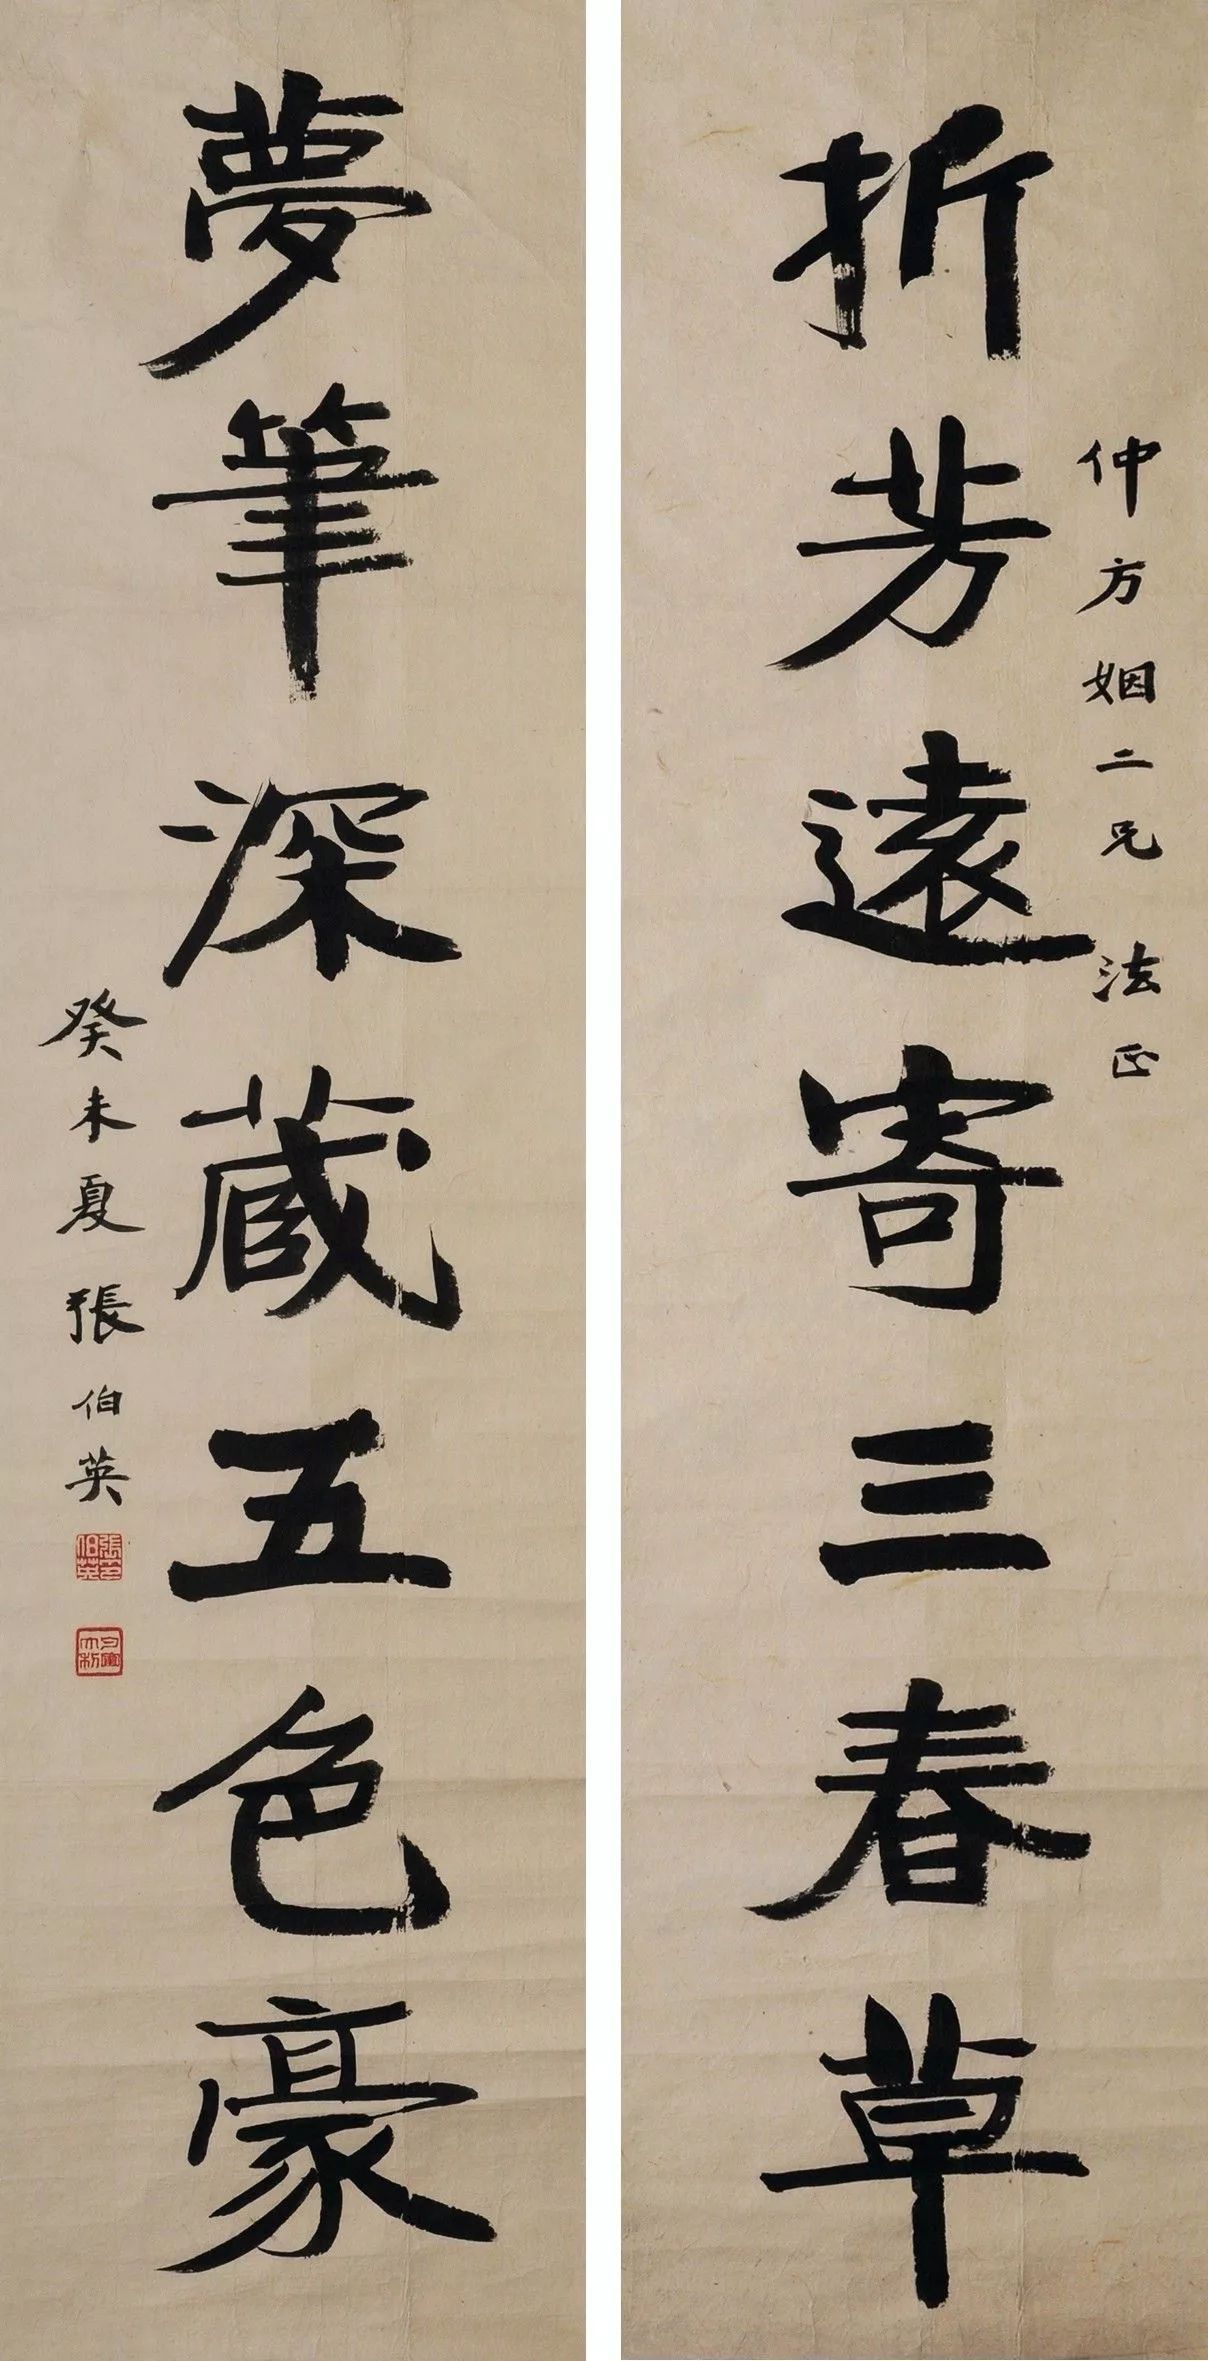 折芳遠寄三春草
仲方姻二兄 法正
夢筆深蔵五色豪
癸未夏張伯英
張伯英